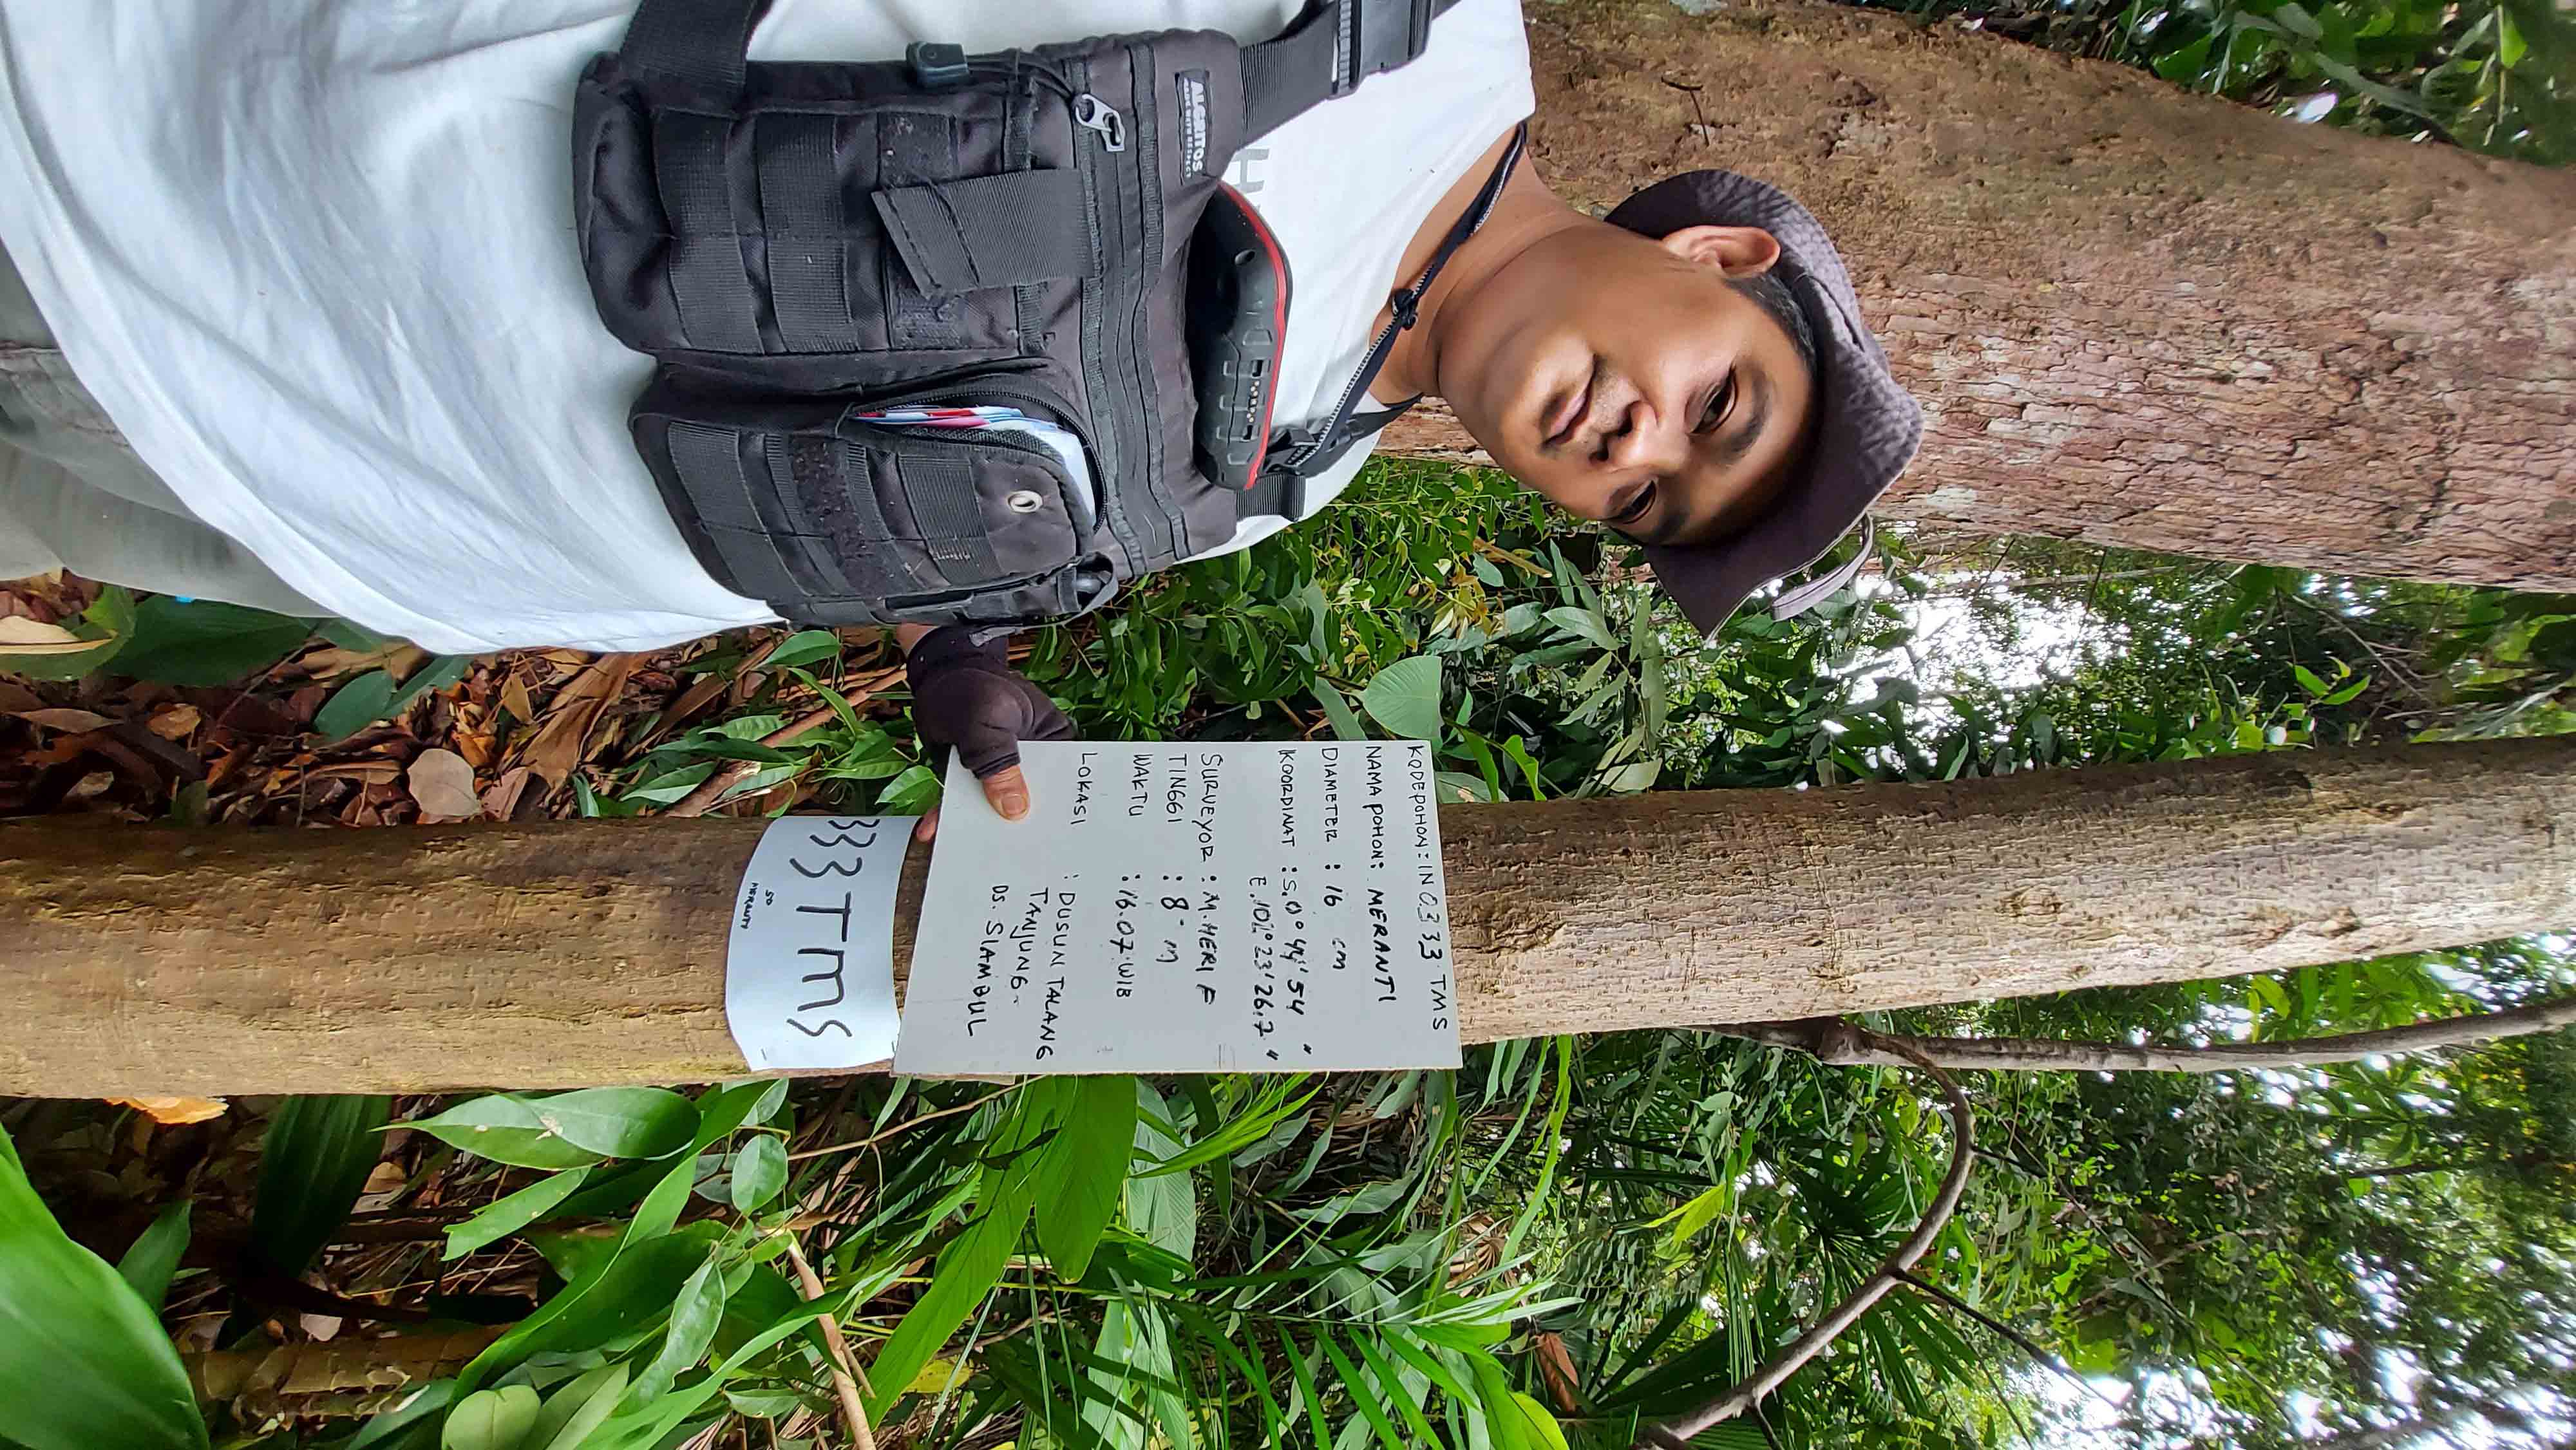 KODE POHON : IN 0333 TMS
NAMA POHON : MERANTI
DIAMETER : 16 cm
KOORDINAT : S. 0° 44' 54 "
E. 101° 23' 26.7 "
SURVEYOR : M. HERI F
TINGGI : 8 m
WAKTU : 16.07. WIB
LOKASI : DUSUN TALANG
TANJUNG
DS. SIAMBUL
333 TMS
50
MERANTI
ALGNTOS
H